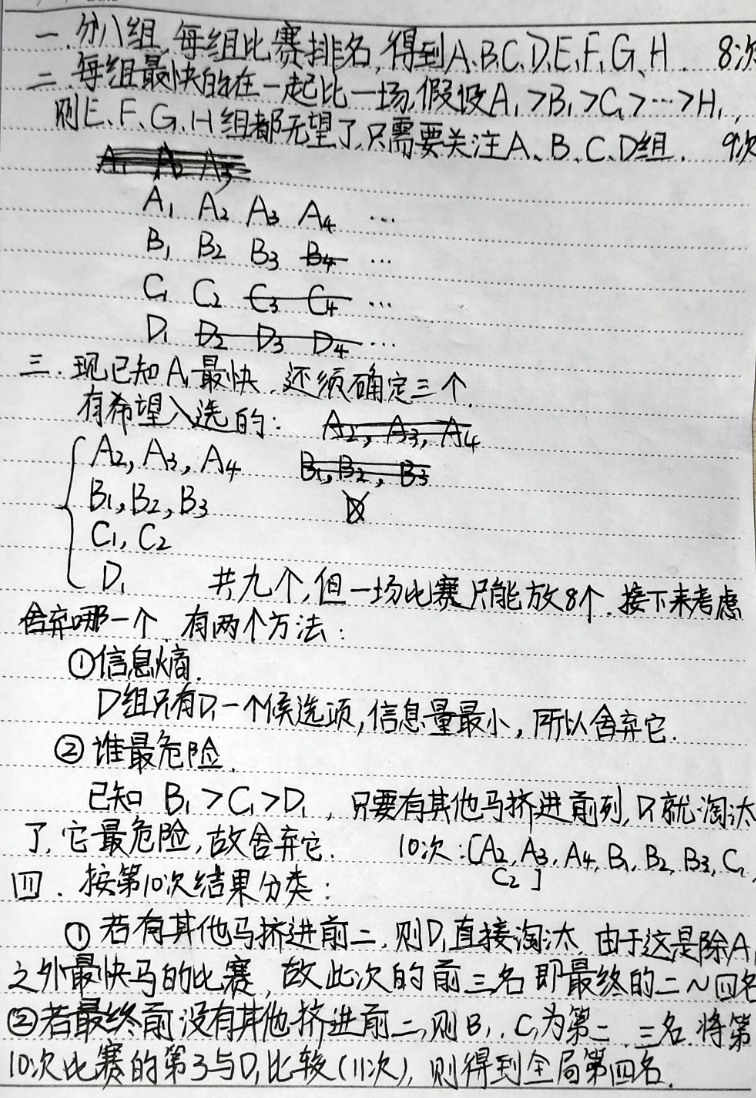 一.分八组,每组比赛排名,得到A、B、C、D、E、F、G、H. 8次
二.每组最快的在一起比一场,假设A₁>B₁>C₁>…>H₁,
则E、F、G、H组都无望了,只需要关注A、B、C、D组. 9次
A₁ A₂ A₃
A₁ A₂ A₃ A₄ …
B₁ B₂ B₃ B₄ …
C₁ C₂ C₃ C₄ …
D₁ D₂ D₃ D₄ …
三.现已知A₁最快,还须确定三个.
有希望入选的: A₂, A₃, A₄
A₂, A₃, A₄ B₁, B₂, B₃
B₁, B₂, B₃
C₁, C₂
D₁ 共九个,但一场比赛只能放8个.接下来考虑
舍弃哪一个.有两个方法:
①信息熵.
D组只有D₁一个候选项,信息量最小,所以舍弃它.
②谁最危险.
已知 B₁>C₁>D₁,只要有其他马挤进前列,D₁就淘汰
了,它最危险,故舍弃它. 10次:[A₂,A₃,A₄,B₁,B₂,B₃,C₁,
C₂]
四.按第10次结果分类:
①若有其他马挤进前二,则D₁直接淘汰.由于这是除A₁
之外最快马的比赛,故此次的前三名即最终的二~四名
②若最终前没有其他挤进前二,则B₁、C₁为第二、三名.将第
10次比赛的第3与D₁比较(11次),则得到全局第四名.